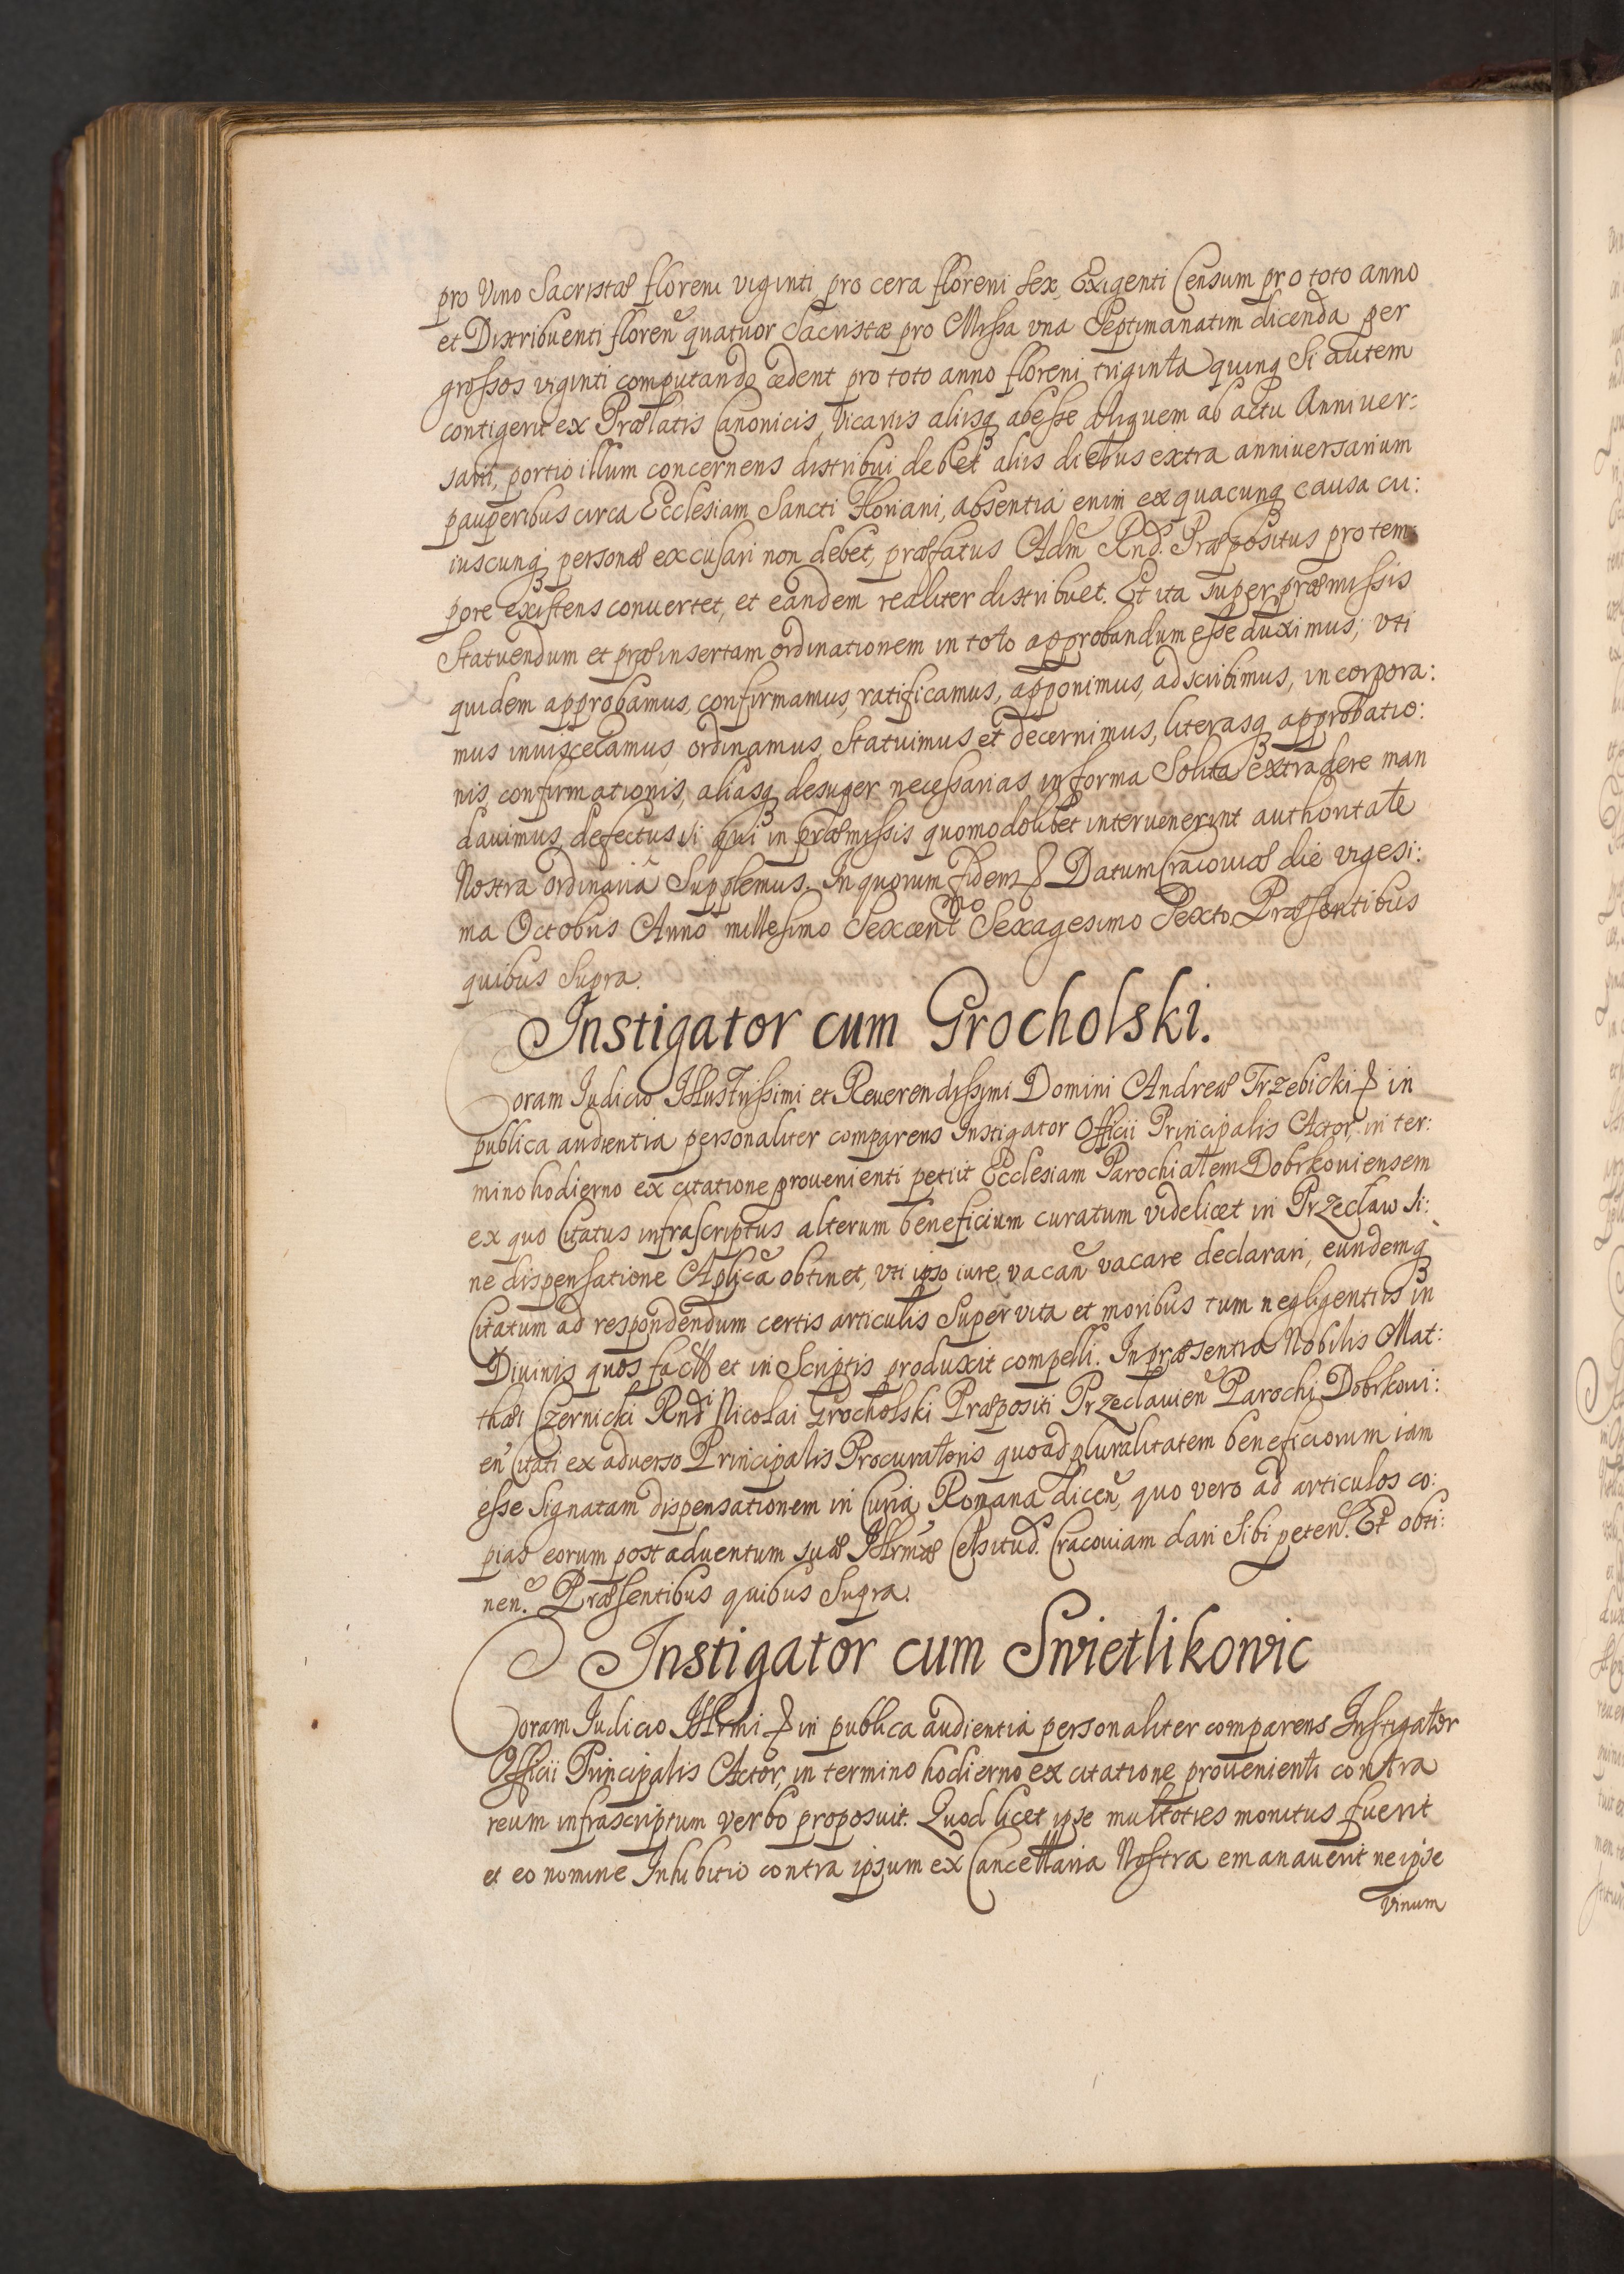 pro Vino Sacristæ floreni viginti pro cera floreni sex, Exigenti Censum pro toto anno
et Distribuenti floren̄ quatuor Sacristæ pro Missa vna Septimanatim dicenda per
grossos viginti computando cedent pro toto anno floreni triginta quinq Si autem
contigerit ex Prælatis Canonicis, Vicarijs alijsq abesse aliquem ab actu Anniuer:
sarij, portio illum concernens distribui debet alijs diebus extra anniuersarium
pauperibus circa Ecclesiam Sancti Floriani, absentia enim ex quacunq causa cu:
iuscunq personæ excusari non debet, præfatus Adm̄ Rnd. Præpositus pro tem:
pore existens conuertet, et eandem realiter distribuet. Et ita super præmissis
Statuendum et præinsertam ordinationem in toto approbandum esse duximus, vti
quidem approbamus, confirmamus, ratificamus, apponimus, adscribimus, incorpora:
mus inuisceramus, ordinamus, Statuimus et decernimus, literasq approbatio:
nis, confirmationis, aliasq desuper necessarias in forma Solita extradere man
dauimus, defectus si qui in præmissis quomodolibet interuenerint authoritate
Nostra ordinaria Supplemus. In quorum fidem & Datum Cracouiæ die vigesi:
ma Octobris Anno millesimo Sexcent^mo Sexagesimo Sexto Præsentibus
quibus Supra.
Instigator cum Grocholski.
Coram Iudicio Illustrissimi et Reuerendissimi Domini Andreæ Trzebicki & in
publica audientia personaliter comparens Instigator Officii Principalis Actor, in ter:
mino hodierno ex citatione prouenienti petiit Ecclesiam Parochialem Dobrkouiensem
ex quo Citatus infrascriptus alterum beneficium curatum videlicet in Przecław si:
ne dispensatione Aplicā obtinet, vti ipso iure vacan̄ vacare declarari, eundemq
Citatum ad respondendum certis articulis Super vita et moribus tum negligentijs in
Diuinis quos facit et in Scriptis produxit compelli. In præsentia Nobilis Mat:
thæi Czernicki Rndi Nicolai Grocholski Præpositi Przeclauien̄ Parochi Dobrkoui:
en̄ Citati ex aduerso Principalis Procuratoris quoad pluralitatem beneficiorum iam
esse Signatam dispensationem in Curia Romana dicen̄, quo vero ad articulos co:
pias eorum post aduentum suæ Illrmæ Celsitud. Cracouiam dari Sibi peten̄. Et obti:
nen̄. Præsentibus quibus Supra.
Instigator cum Swietlikowic
Coram Iudicio Illrmi & in publica audientia personaliter comparens Instigator
Officii Principalis Actor, in termino hodierno ex citatione prouenienti contra
reum infrascriptum verbo proposuit. Quod licet ipse multoties monitus fuerit
et eo nomine Inhibitio contra ipsum ex Cancellaria Nostra emanauerit ne ipse
vinum